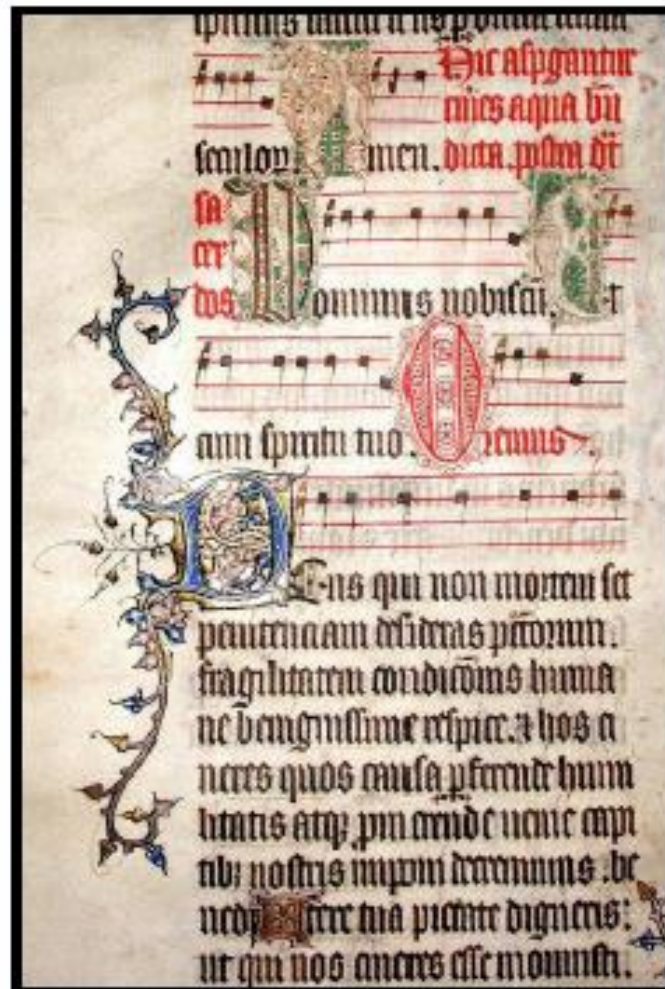 Hic aspgantur
cines aqua bn
seculoꝝ. Amen. dicta. postea dt
sa
cer
dos Dominus nobiscū. Et
cum spiritu tuo. Oremus
Deus qui non mortem set
penitenciam desideras pctorum.
fragilitatem condicōnis huma
ne benignissime respice. ⁊ hos ci
neres quos causa pferende humi
litatis atqꝫ pmerende uenie capi
tibꝫ nostris imponi decernimus. be
nedicere tua pietate digneris:
ut qui nos cineres esse monuisti.